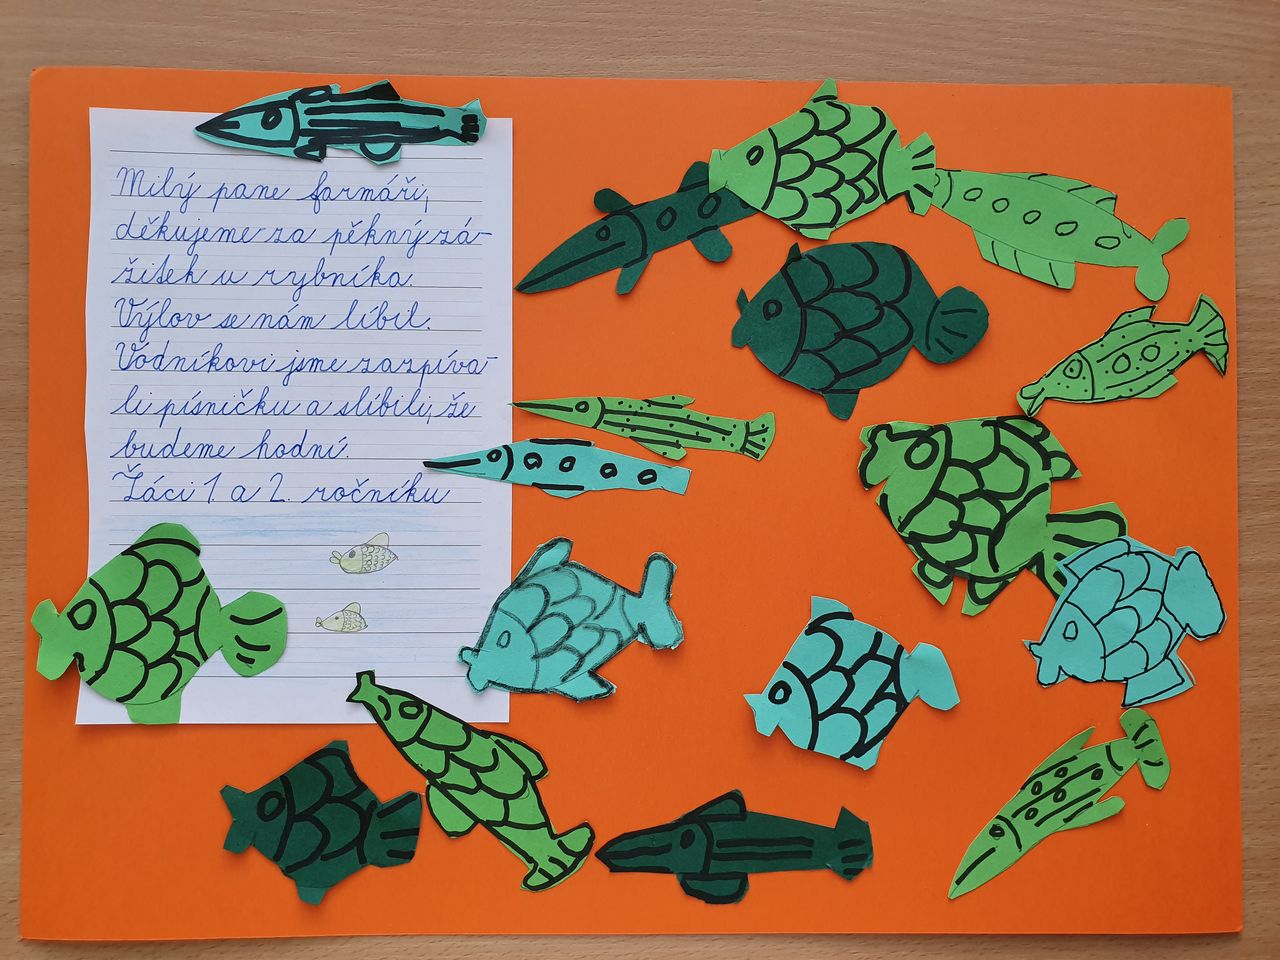 Milý pane farmáři,
děkujeme za pěkný zá-
žitek u rybníka.
Výlov se nám líbil.
Vodníkovi jsme zazpíva-
li písničku a slíbili, že
budeme hodní.
Žáci 1. a 2. ročníku